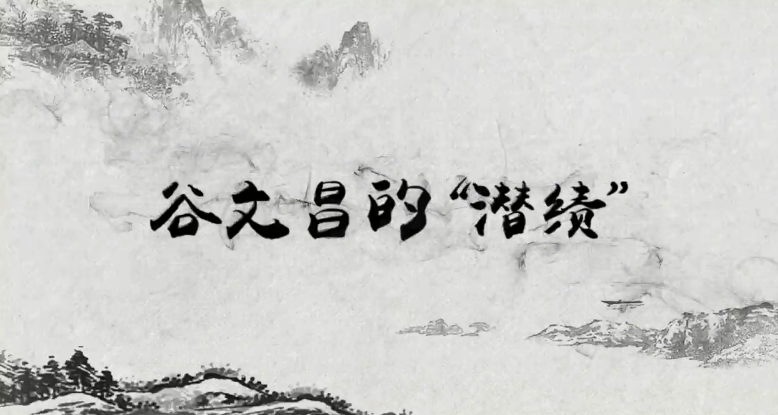 谷文昌的“潜绩”